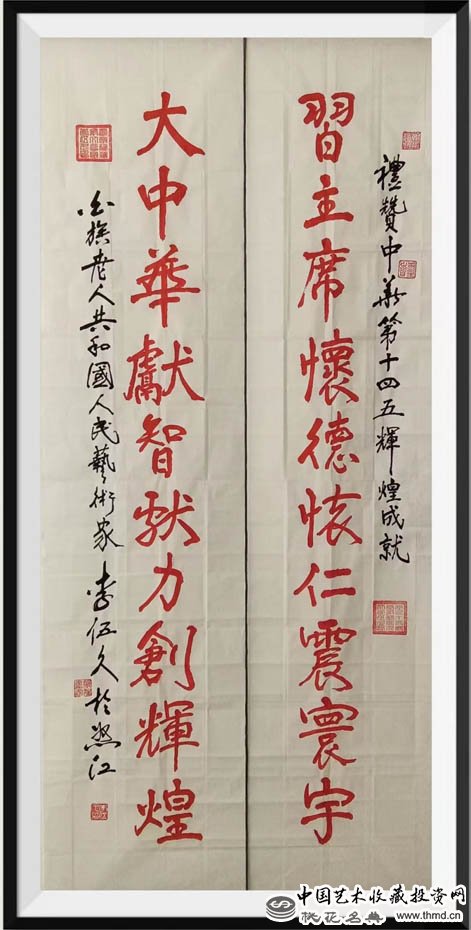 禮贊中華第十四五輝煌成就
習主席懷德懷仁震寰宇
大中華獻智献力創輝煌
白族老人共和國人民藝術家 李伍久於怒江
中国艺术收藏投资网
桃花名典 www.thmd.cn